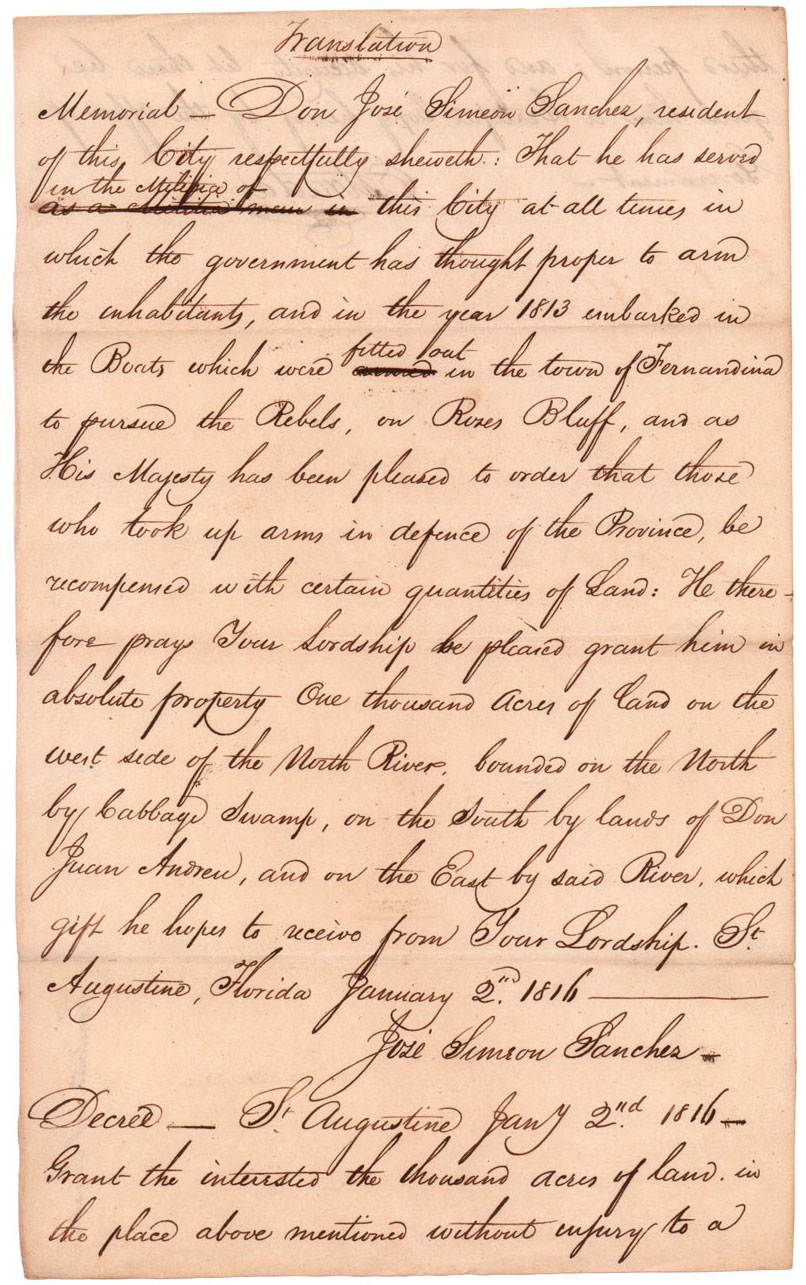 Translation
Memorial — Don José Simeon Sanchez, resident
of this City respectfully sheweth: That he has served
in the Militia of
as a Militia man in this City at all times in
which the government has thought proper to arm
the inhabitants, and in the year 1813 embarked in
fitted out
the Boats which were armed in the town of Fernandina
to pursue the Rebels, on Roses Bluff, and as
His Majesty has been pleased to order that those
who took up arms in defence of the Province, be
recompensed with certain quantities of Land: He there-
fore prays Your Lordship be pleased grant him in
absolute property One thousand Acres of Land on the
west side of the North River, bounded on the North
by Cabbage Swamp, on the South by lands of Don
Juan Andreu, and on the East by said River, which
gift he hopes to receive from Your Lordship. St.
Augustine, Florida January 2nd. 1816 —
José Simeon Sanchez —
Decree — St. Augustine Jany 2nd. 1816 —
Grant the interested the thousand acres of land in
the place above mentioned without injury to a